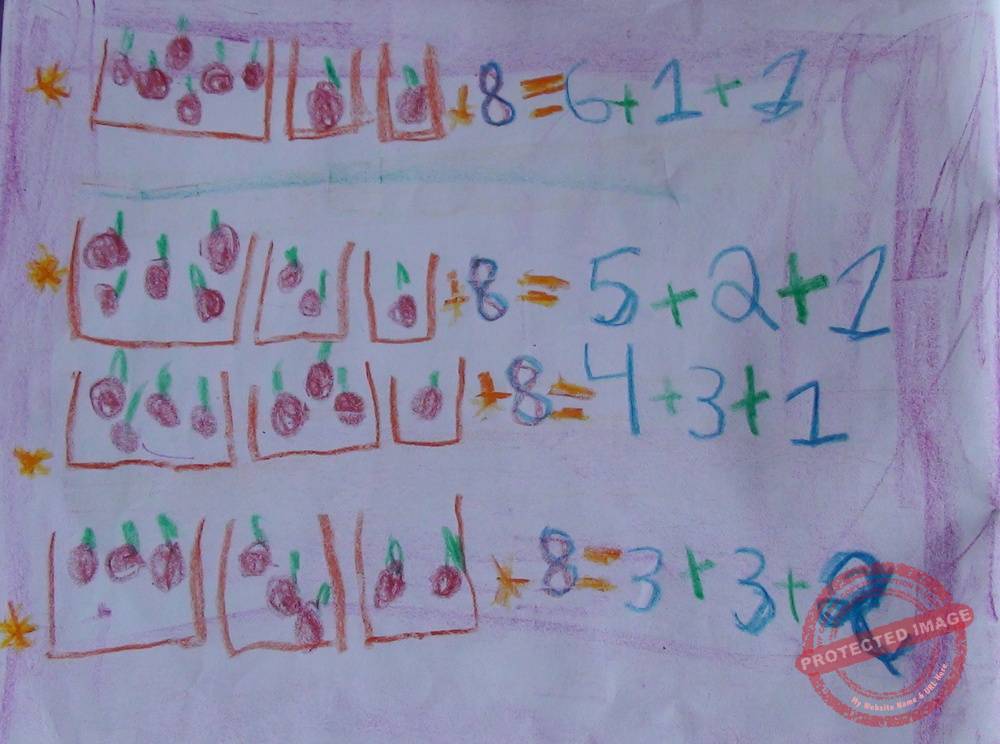 * 8 = 6 + 1 + 1
* 8 = 5 + 2 + 1
* 8 = 4 + 3 + 1
* 8 = 3 + 3 + 2
PROTECTED IMAGE
My Website Name & URL Here